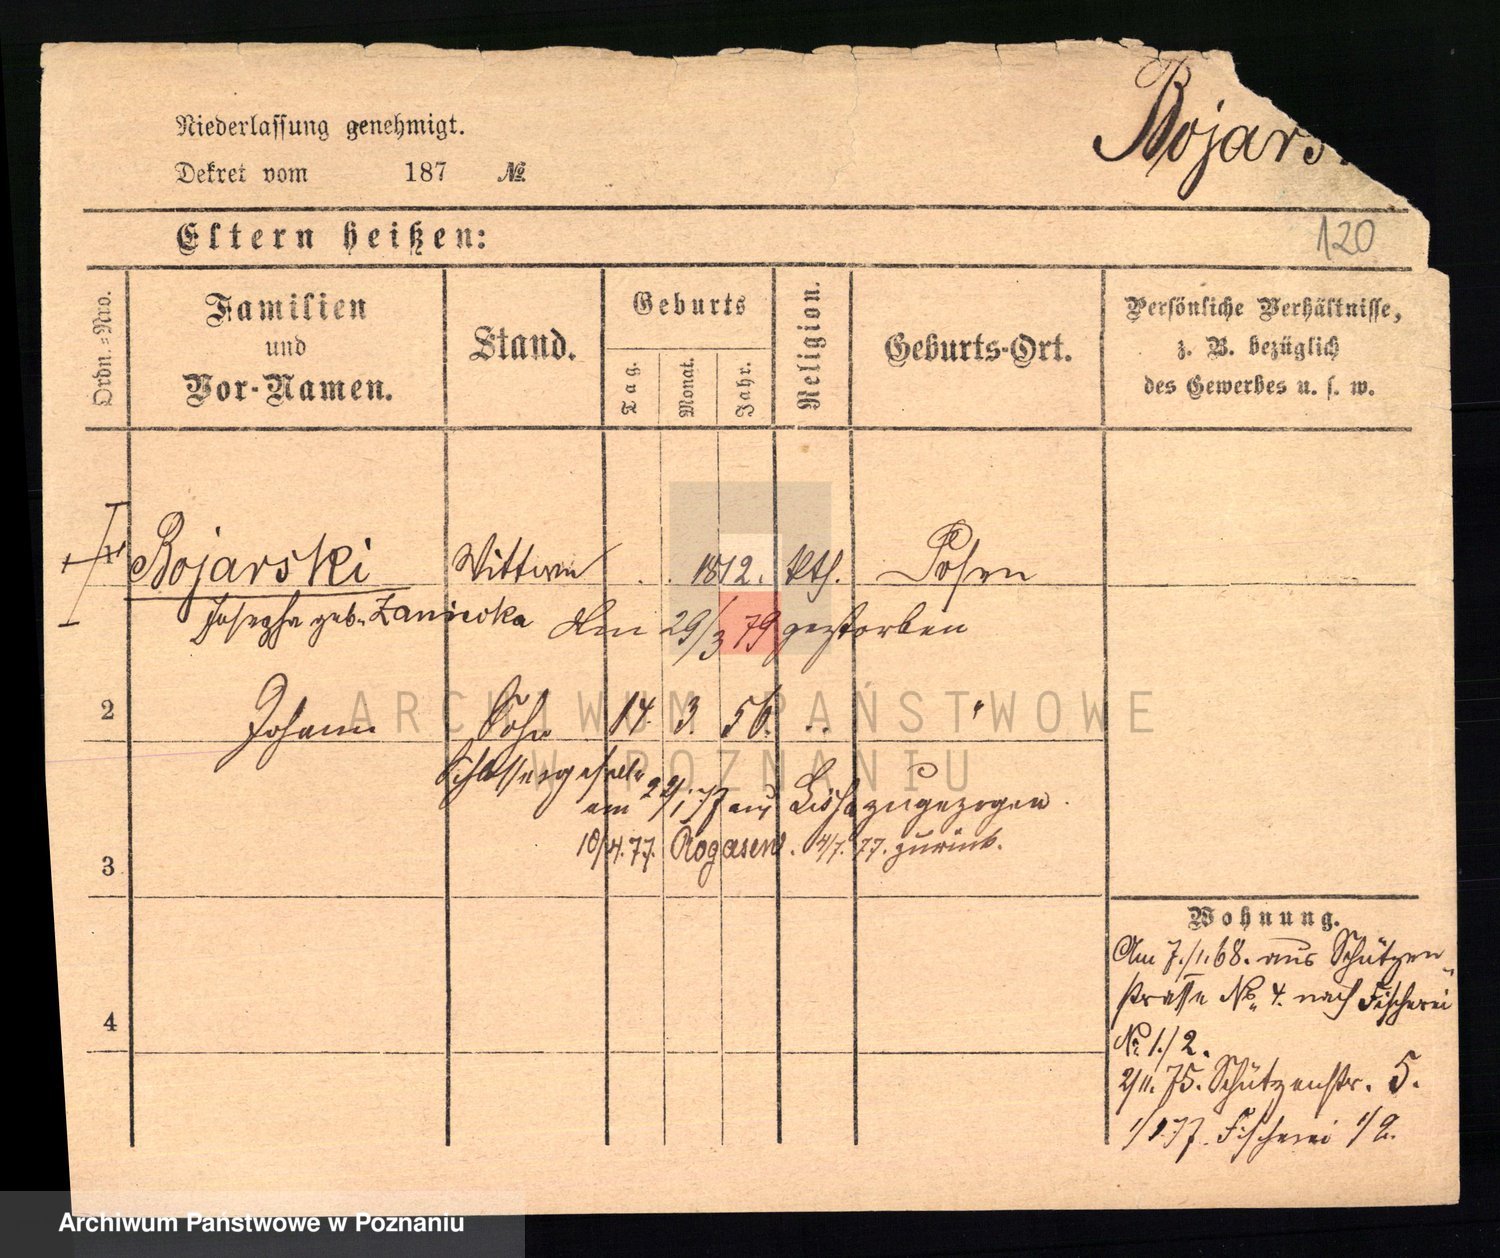 Bojars
Niederlassung genehmigt.
Dekret vom 187 №
120
Eltern heißen:
Ordn.-Nro.
Familien und Vor-Namen.
Stand.
Geburts
Tag.
Monat.
Jahr.
Religion.
Geburts-Ort.
Persönliche Verhältnisse,
z. B. bezüglich
des Gewerbes u. s. w.
1 Bojarski Wittwe 1812. kth. Posen
Josepha geb. Am 29/3 79 gestorben
2 Johann Sohn 14. 3. 56. " "
Schlossergeselle
am 22/1 77 aus Lissa zugezogen.
10/4. 77. Rogasen. 4/7. 77. zurück.
3
4
Wohnung.
Am 7./1.68. aus Schützen-
strasse No. 4. nach Fischerei
№ 1./2.
2/11. 75. Schützenstr. 5.
77. Fischerei 1/2.
ARCHIWUM PAŃSTWOWE
W POZNANIU
Archiwum Państwowe w Poznaniu